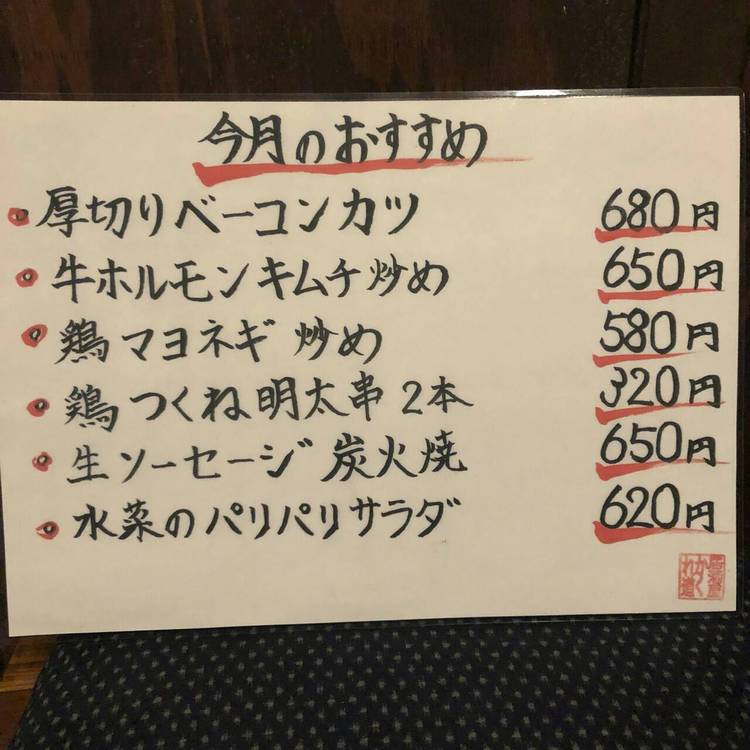 今月のおすすめ
厚切りベーコンカツ 680円
牛ホルモンキムチ炒め 650円
鶏マヨネギ炒め 580円
鶏つくね明太串2本 320円
生ソーセージ炭火焼 650円
水菜のパリパリサラダ 620円